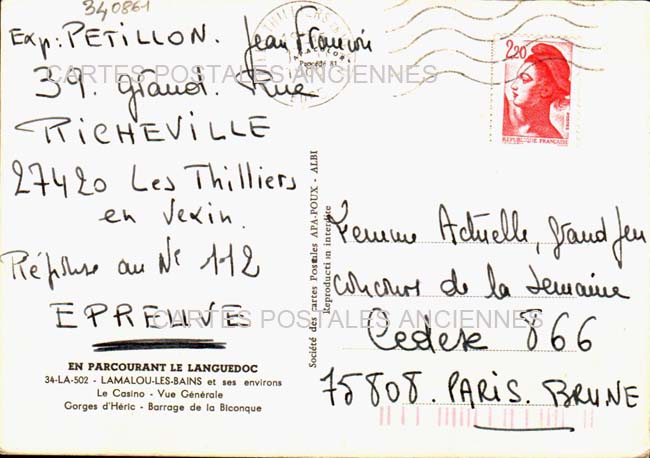 340861
Exp: PETILLON. Jean François
39. grand. Rue
RICHEVILLE
27420 Les Thilliers
en Vexin.
Réponse au N° 112
EPREUVE
EN PARCOURANT LE LANGUEDOC
34-LA-502 - LAMALOU-LES-BAINS et ses environs
Le Casino - Vue Générale
Gorges d'Héric - Barrage de la Biconque
Société des cartes Postales APA-POUX - ALBI
Reproduction interdite
2,20
POSTES
REPUBLIQUE FRANÇAISE
Femme Actuelle, grand jeu
concours de la semaine
Cedex 866
75808. PARIS. BRUNE
CARTES POSTALES ANCIENNES
CARTES POSTALES ANCIENNES